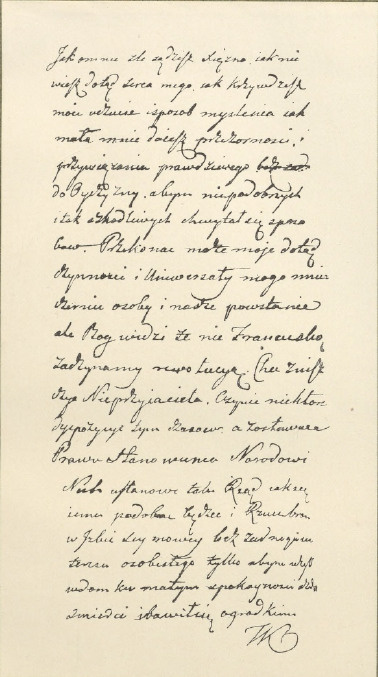 Jak o mnie źle sądzisz Xiężno, jak nie
wiesz dotąd serca mego, jak krzywdzisz
moie uczucie i sposób myślenia jak
mało mnie daiesz przezorności i
przywiązania prawdziwego
do Oyczyzny, abym niepodobnych
i tak szkodliwych chwytał się sposo
bow. Przekonać może moje dotąd
czynności i Uniwersały mogo
osoby i nasze powstanie
ale Bog widzi że nie Francuską
zaczynamy rewolucyą. Chcę znisz
czyć Nieprzyjaciela. Czynię niektore
dyspozycye tym czasowe, a zostawuię
Prawo stanowienia Narodowi
Niech ustanowi taki Rząd iaki się
iemu podobać będzie i
w Izbie Seymowey bez żadnego in
teresu osobistego tylko abym
w domku małym spokoynosci
śmierci i bawił się ogrodkiem
TK